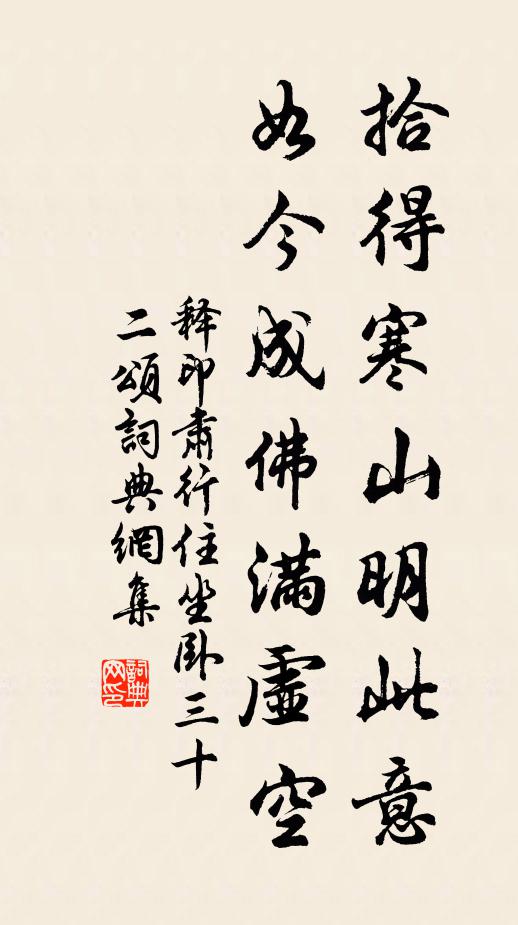 拾得寒山明此意
如今成佛滿虛空
释印肅行住坐臥三十
二頌詞典網集
詞典网印